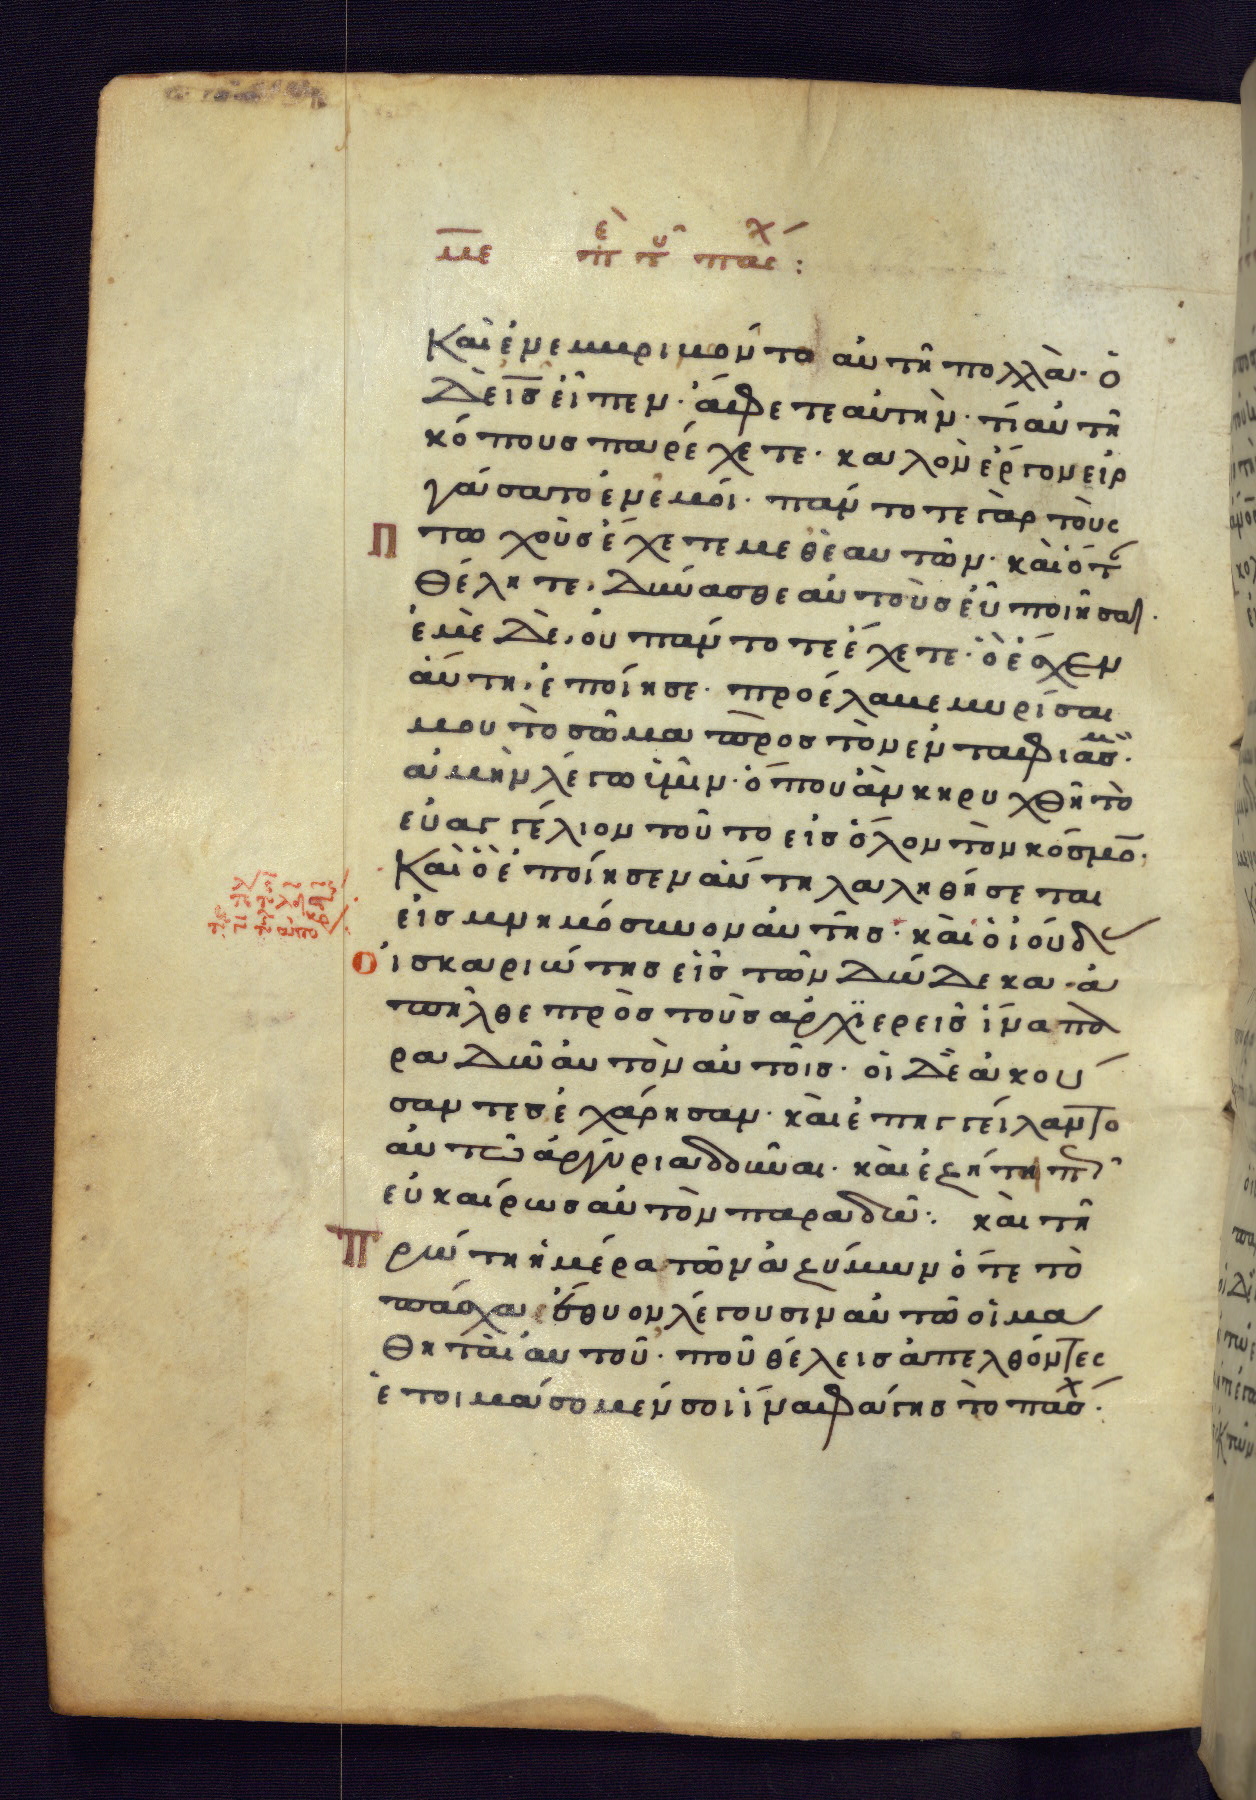 με πὲ π υ πασχ :
Καὶ ἐνεμϐριμοῦντο αὐτῆ πολλὰ· ὁ
δὲ ι̅ς̅ εἶπεν· ἄφετε αὐτὴν· τί αὐτῆ
κόπουσ παρέχετε· καλὸν ἔργον εἰρ
γάσατο ἐν ἐμοί· πάντοτε γὰρ τοὺς
πτωχοὺσ ἔχετε μεθ ἑαυτῶν· καὶ ὅτ
θέλητε, δύνασθε αὐτοὺσ εὖ ποιῆσαι·
ἐμὲ δὲ, οὐ πάντοτε ἔχετε· ὃ ἔσχεν
αὕτη, ἐποίησε· προέλαβε μυρίσαι
μου τὸ σῶμα πρὸσ τὸν ἐνταφιασμ·
ἀμὴν λέγω ὑμῖν· ὅπου ἂν κηρυχθῆ τὸ
εὐαγγέλιον τοῦτο εἰσ ὅλον τὸν κόσμο·
Καὶ ὃ ἐποίησεν αὕτη λαληθήσεται
εἰσ μνημόσυνον αὐτῆσ· καὶ ὁ ἰούδ
ἰσκαριώτησ εἷσ τῶν δώδεκα· ἀ
πῆλθε πρὸσ τοὺσ ἀρχϊερεῖσ ἵνα πα
ραδῶ αὐτὸν αὐτοῖσ· οἱ δὲ ἀκού
σαντεσ ἐχάρησαν· καὶ ἐπηγγείλαντο
αὐτῶ ἀργύρια δοῦναι· καὶ ἐζήτη πῶ
εὐκαίρωσ αὐτὸν παραδῶ: καὶ τῆ
Πρώτη ἡμέρα τῶν ἀζύμων ὅτε τὸ
πάσχα ἔθυον λέγουσιν αὐτῶ οἱ μα
θηταὶ αὐτοῦ· ποῦ θέλεισ ἀπελθόντες
ἑτοιμάσομέν σοι ἵνα φάγησ τὸ πάσχ·